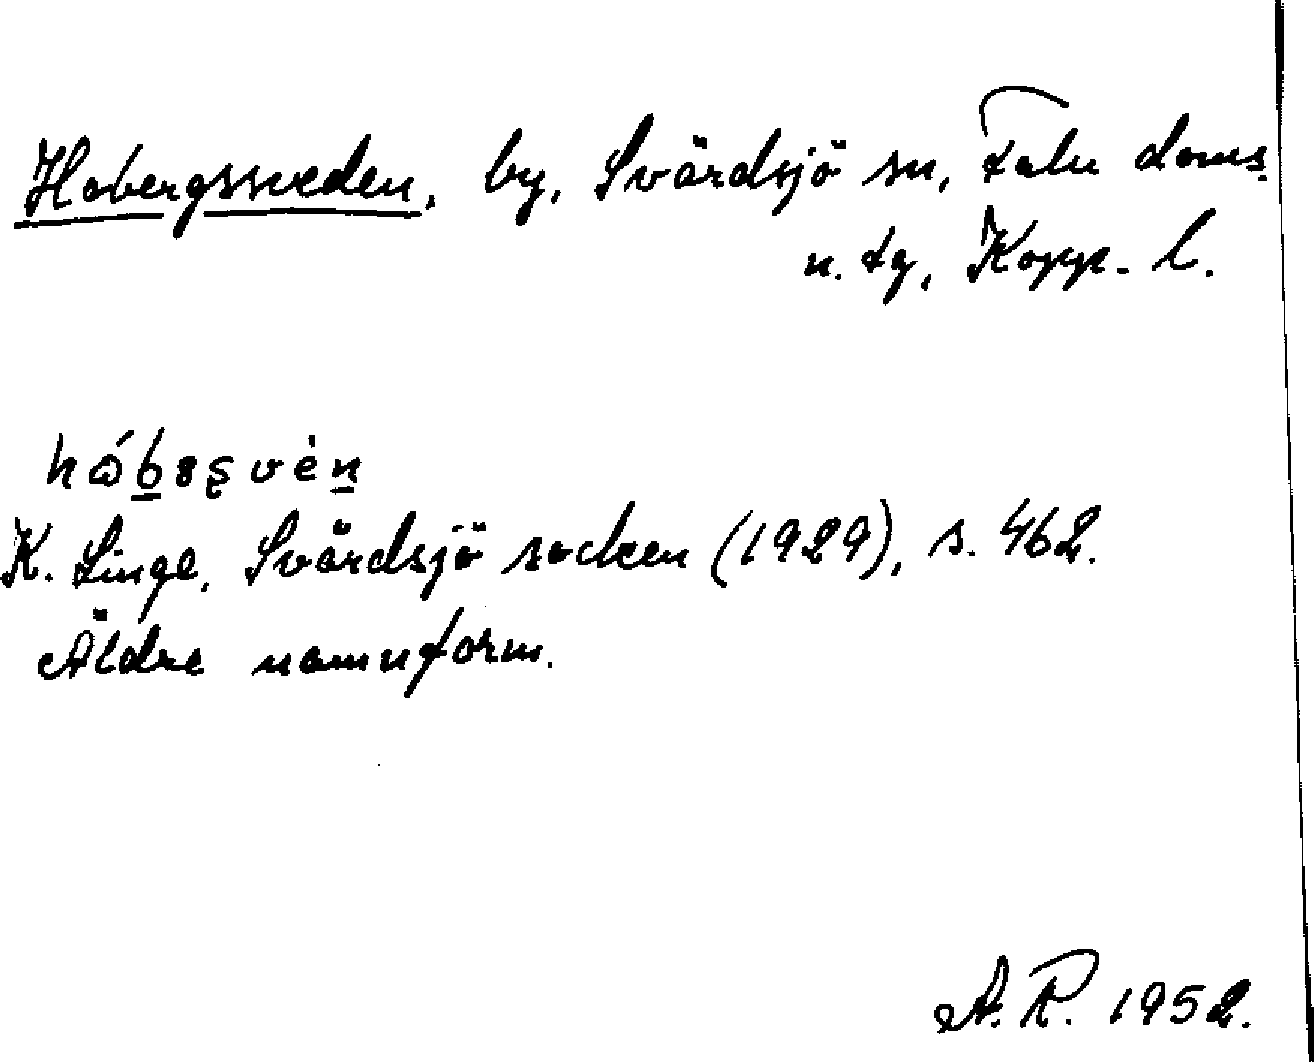 Hobergssveden, by, Svärdsjö sn, Falu doms.
n. fg, Kopp. l.
K. Linge, Svärdsjö socken (1929), s. 462.
Äldre namnform.
A. R. 1952.